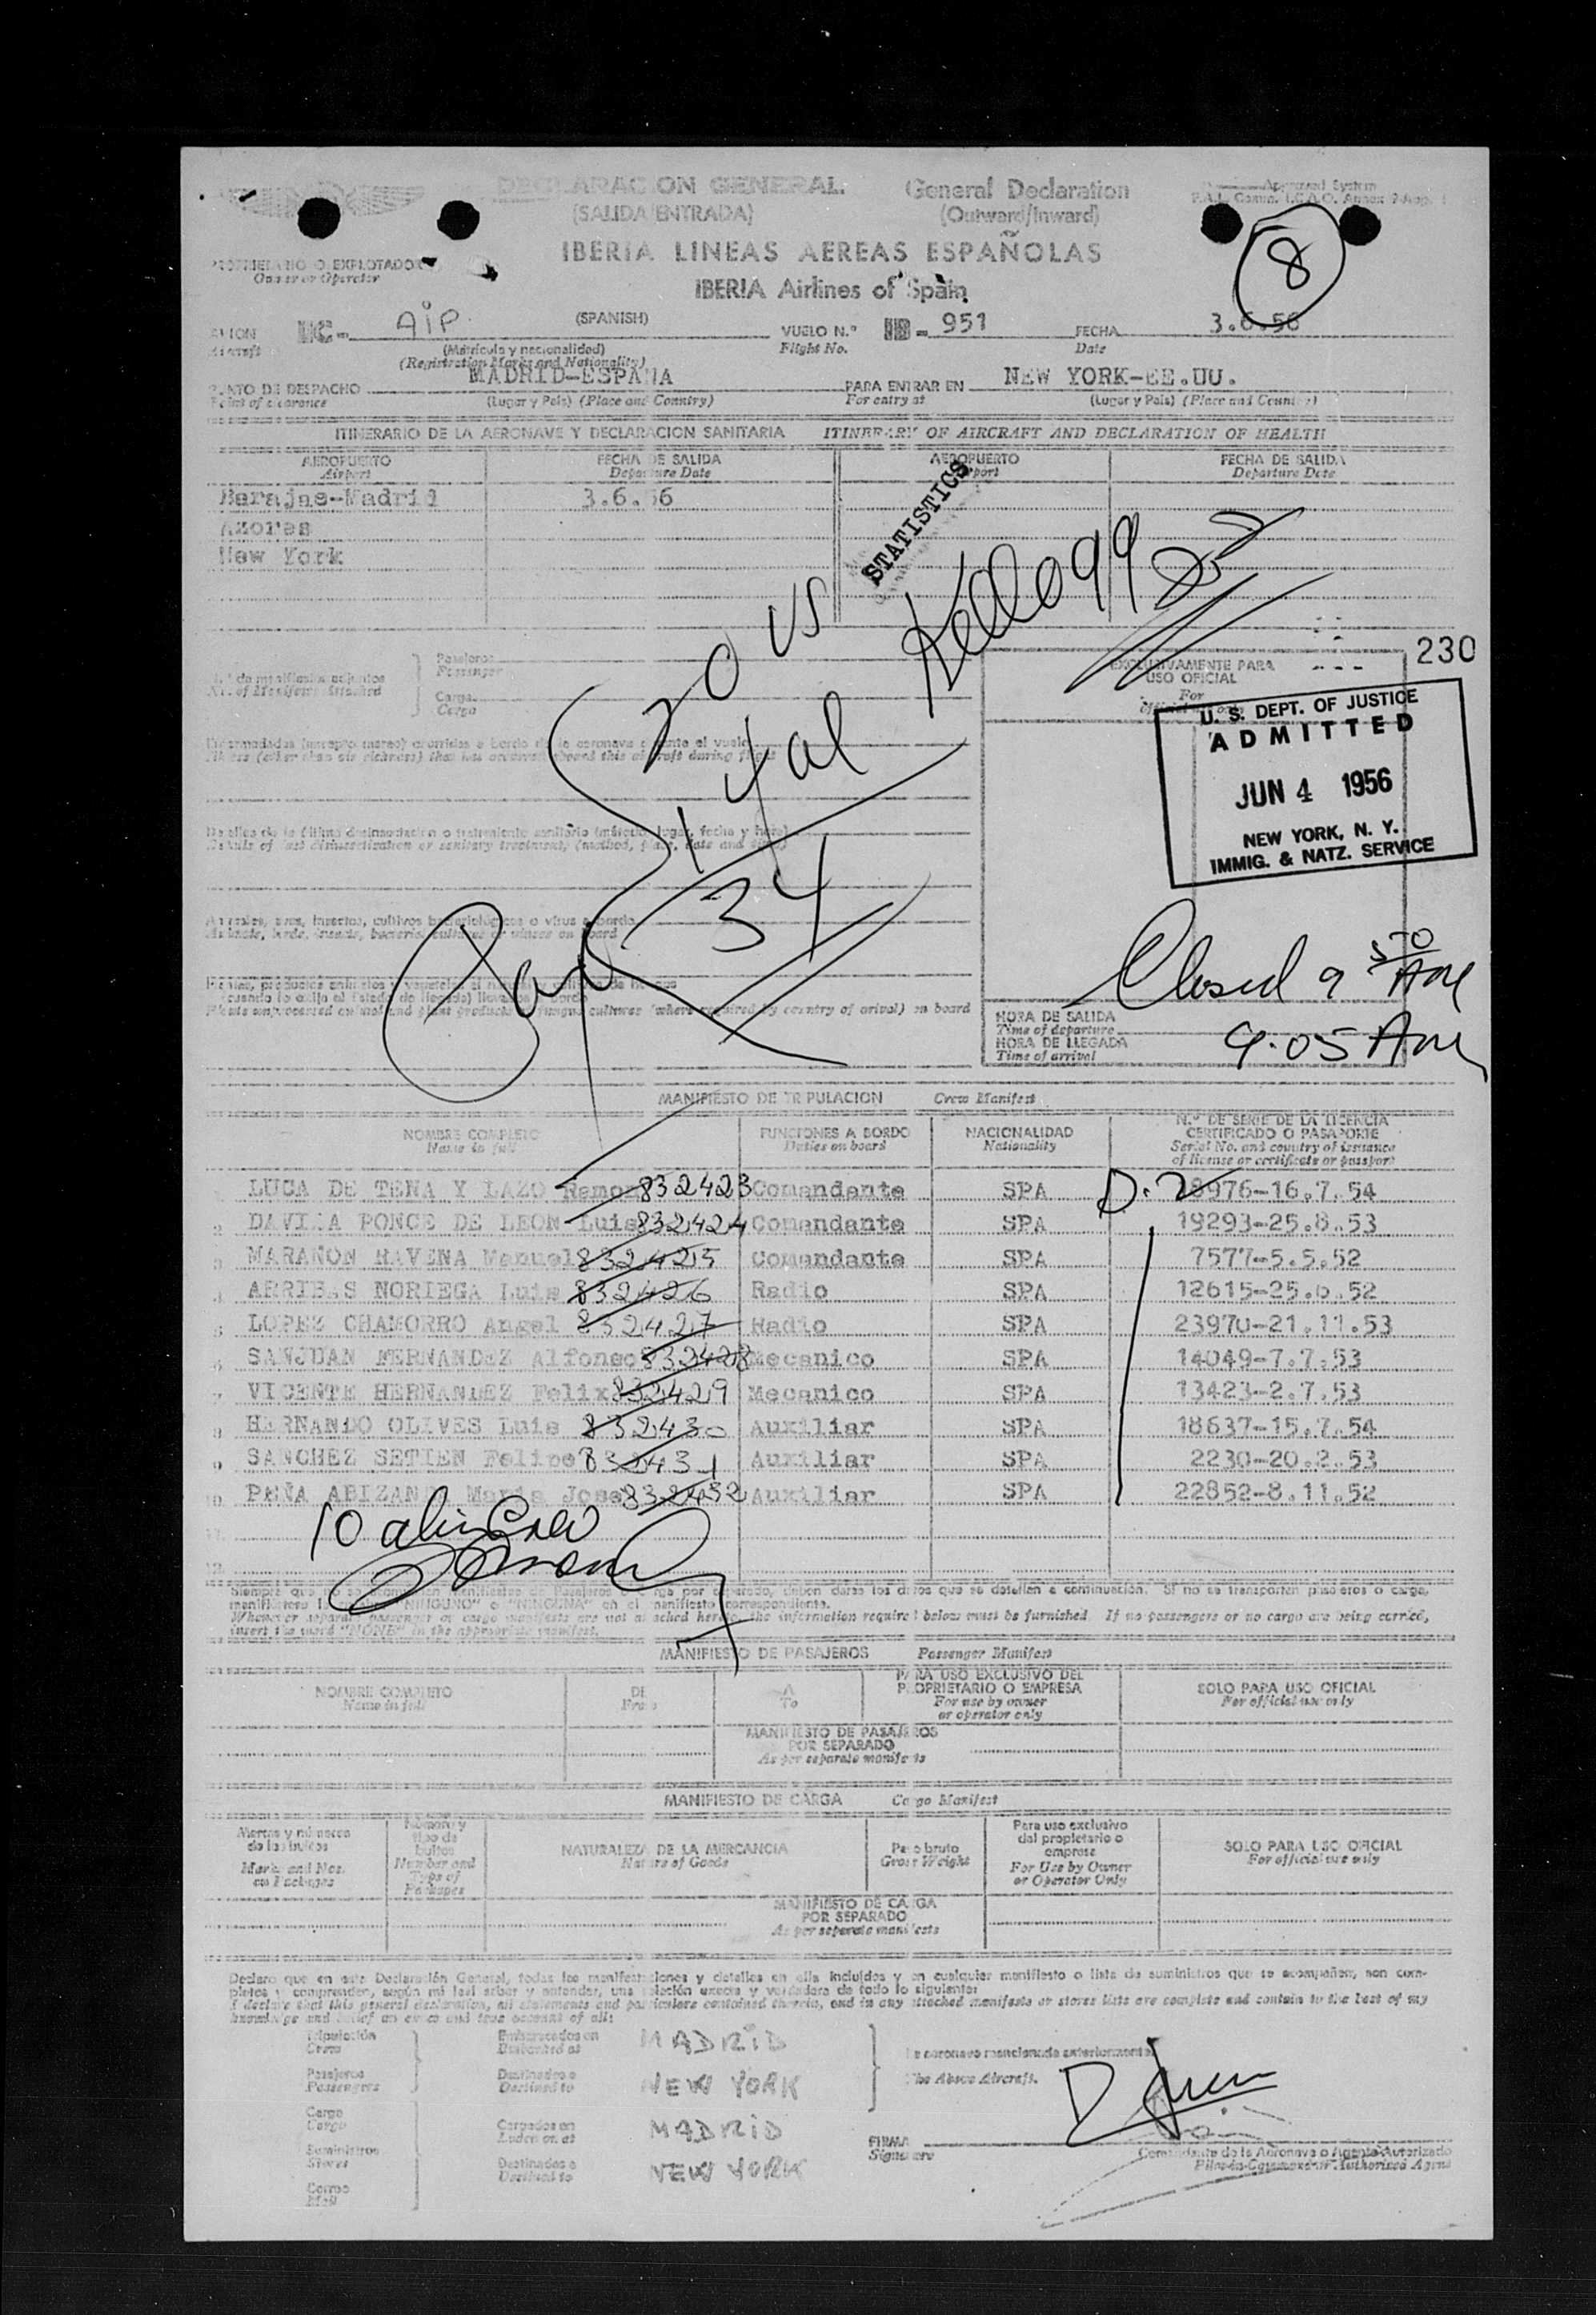 DECLARACION GENERAL General Declaration
(SALIDA/ENTRADA) (Outward/Inward)
Approved System
F.A.L. Comm. I.C.A.O. Annex 9-App. 1
8
IBERIA LINEAS AEREAS ESPAÑOLAS
PROPIETARIO O EXPLOTADOR
Owner or Operator
IBERIA Airlines of Spain
AVION EC- AiP. (SPANISH) VUELO N.º IB- 951 FECHA 3.6.56
Aircraft (Matrícula y nacionalidad) Flight No. Date
(Registration Marks and Nationality)
PUNTO DE DESPACHO MADRID-ESPAÑA PARA ENTRAR EN NEW YORK-EE.UU.
Point of clearance (Lugar y País) (Place and Country) For entry at (Lugar y País) (Place and Country)
ITINERARIO DE LA AERONAVE Y DECLARACION SANITARIA ITINERARY OF AIRCRAFT AND DECLARATION OF HEALTH
AEROPUERTO FECHA DE SALIDA AEROPUERTO FECHA DE SALIDA
Airport Departure Date Airport Departure Date
Barajas-Madrid 3.6.56
Azores
New York
STATISTICS
20 US
14 al
34
Kellogg
230
N.º de manifiestos adjuntos
No. of Manifests attached
Pasajeros
Passenger
Carga
Cargo
EXCLUSIVAMENTE PARA
USO OFICIAL
For
U. S. DEPT. OF JUSTICE
ADMITTED
JUN 4 1956
NEW YORK, N. Y.
IMMIG. & NATZ. SERVICE
Enfermedades (excepto mareo) ocurridas a bordo de la aeronave durante el vuelo
Illness (other than air sickness) that has occurred aboard this aircraft during flight
Detalles de la última desinsectación o tratamiento sanitario (método, lugar, fecha y hora)
Details of last disinsectization or sanitary treatment, (method, place, date and time)
Animales, aves, insectos, cultivos bacteriológicos o virus a bordo
Animals, birds, insects, bacterial cultures or viruses on board
Closed 9 30 AM
HORA DE SALIDA
Time of departure
HORA DE LLEGADA
Time of arrival
9.05 AM
MANIFIESTO DE TRIPULACION Crew Manifest
NOMBRE COMPLETO FUNCIONES A BORDO NACIONALIDAD N.º DE SERIE DE LA LICENCIA
CERTIFICADO O PASAPORTE
Name in full Duties on board Nationality Serial No. and country of issuance
of license or certificate or passport
LUCA DE TENA Y LAZO Ramon 832423 Comandante SPA D.2 18976-16.7.54
2 DAVILA PONCE DE LEON Luis 832424 Comandante SPA 19293-25.8.53
3 MARAÑON RAVENA Manuel 832425 Comandante SPA 7577-5.5.52
4 ARRIBAS NORIEGA Luis 832426 Radio SPA 12615-25.6.52
5 LOPEZ CHAMORRO Angel 832427 Radio SPA 23970-21.11.53
6 SANJUAN FERNANDEZ Alfonso 832428 Mecanico SPA 14049-7.7.53
7 VICENTE HERNANDEZ Felix 832429 Mecanico SPA 13423-2.7.53
8 HERNANDO OLIVES Luis 832430 Auxiliar SPA 18637-15.7.54
9 SANCHEZ SETIEN Felipe 832431 Auxiliar SPA 2230-20.2.53
10 PEÑA ABIZANDA Maria Jose 832432 Auxiliar SPA 22852-8.11.52
11
12
10 alien Crew
Whenever separate passenger or cargo manifests are not attached hereto, the information required below must be furnished. If no passengers or no cargo are being carried,
insert the word "NONE" in the appropriate manifest.
MANIFIESTO DE PASAJEROS Passenger Manifest
NOMBRE COMPLETO DE A PARA USO EXCLUSIVO DEL
PROPIETARIO O EMPRESA SOLO PARA USO OFICIAL
Name in full From To For use by owner
or operator only For official use only
MANIFIESTO DE PASAJEROS
POR SEPARADO
As per separate manifests
MANIFIESTO DE CARGA Cargo Manifest
Marcas y números
de los bultos
Marks and Nos.
on Packages
Número y
tipo de
bultos
Number and
Type of
Packages
NATURALEZA DE LA MERCANCIA
Nature of Goods
Peso bruto
Gross Weight
Para uso exclusivo
del propietario o
empresa
For Use by Owner
or Operator Only
SOLO PARA USO OFICIAL
For official use only
MANIFIESTO DE CARGA
POR SEPARADO
As per separate manifests
Declaro que en esta Declaración General, todas las manifestaciones y detalles en ella incluídos y en cualquier manifiesto o lista de suministros que se acompañen, son com-
pletos y comprenden, según mi leal saber y entender, una relación exacta y verdadera de todo lo siguiente:
I declare that this general declaration, all statements and particulars contained therein, and in any attached manifests or stores lists are complete and contain to the best of my
knowledge and belief an exact and true account of all:
Tripulación
Crew
Embarcados en
Embarked at
MADRID
Pasajeros
Passengers
Destinados a
Destined to
NEW YORK
La aeronave mencionada anteriormente.
The Above Aircraft.
Carga
Cargo
Cargados en
Laden on at
MADRID
Suministros
Stores
Destinados a
Destined to
NEW YORK
Correo
Mail
FIRMA
Signature
Comandante de la Aeronave o Agente Autorizado
Pilot-in-Command or Authorized Agent